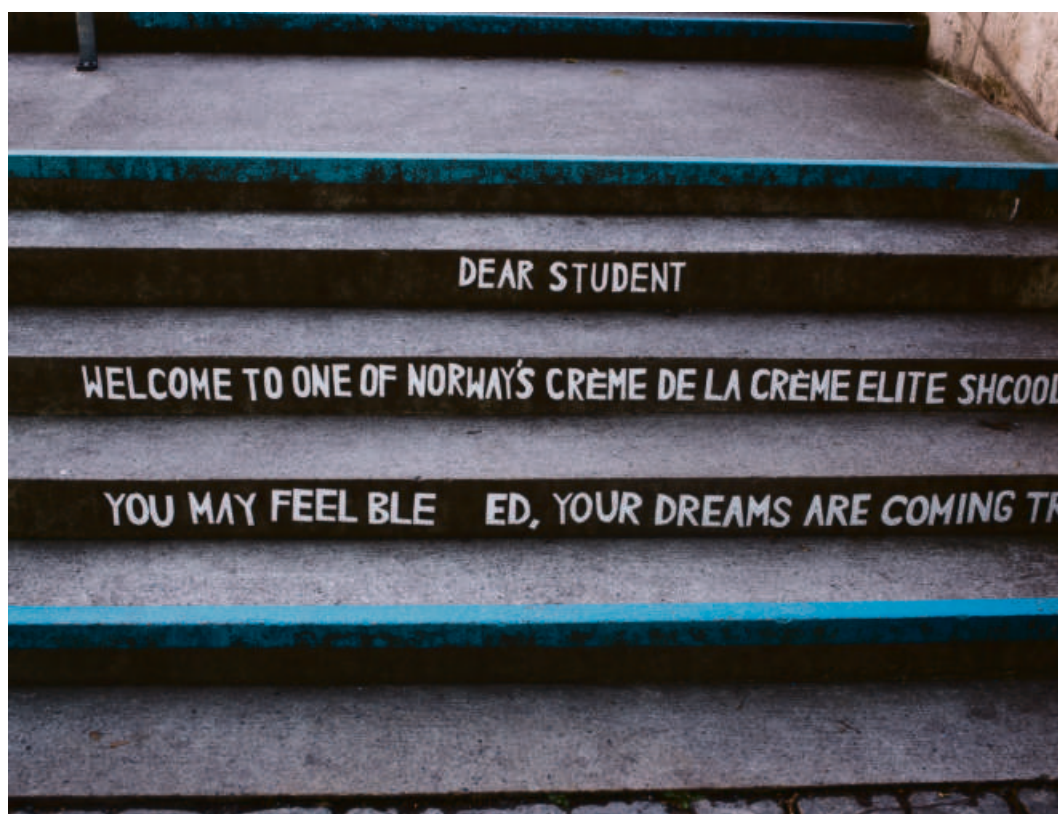 DEAR STUDENT
WELCOME TO ONE OF NORWAY'S CRÈME DE LA CRÈME ELITE SHCOOL
YOU MAY FEEL BLE ED, YOUR DREAMS ARE COMING